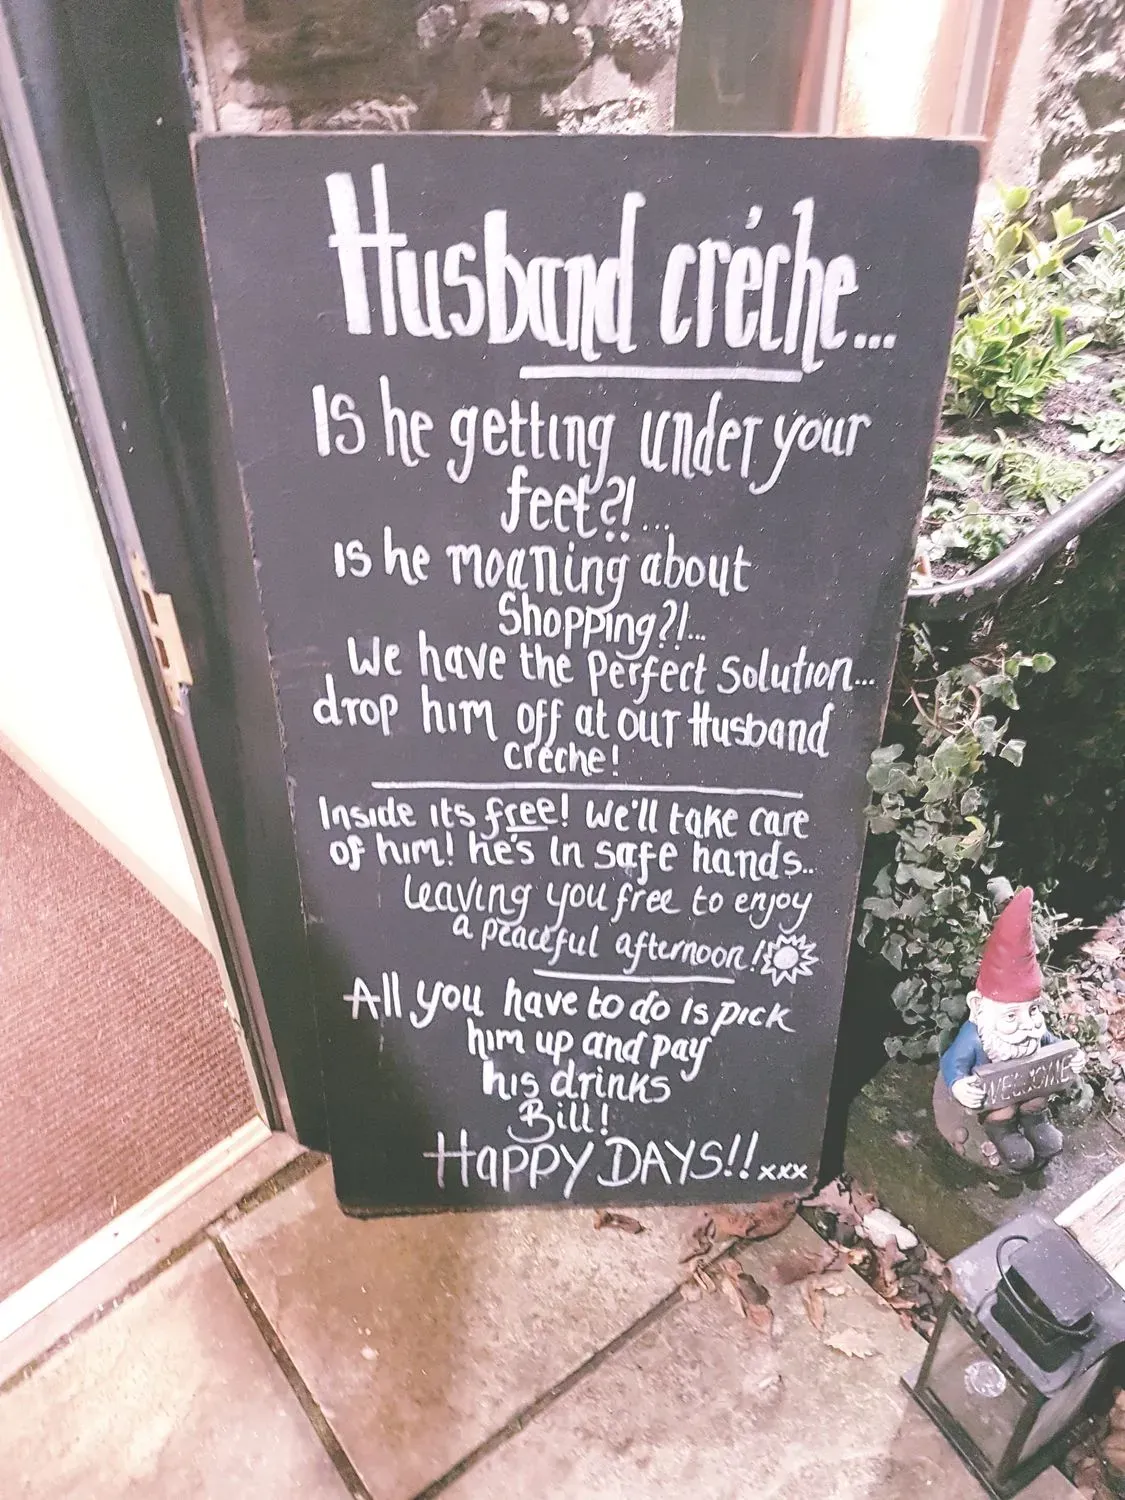 Husband créche...
Is he getting under your
feet?!...
is he moaning about
Shopping?!...
We have the perfect solution...
drop him off at our Husband
créche!
Inside its free! We'll take care
of him! he's in safe hands..
leaving you free to enjoy
a peaceful afternoon!
All you have to do is pick
him up and pay
his drinks
Bill!
Happy DAYS!!xxx
WELCOME